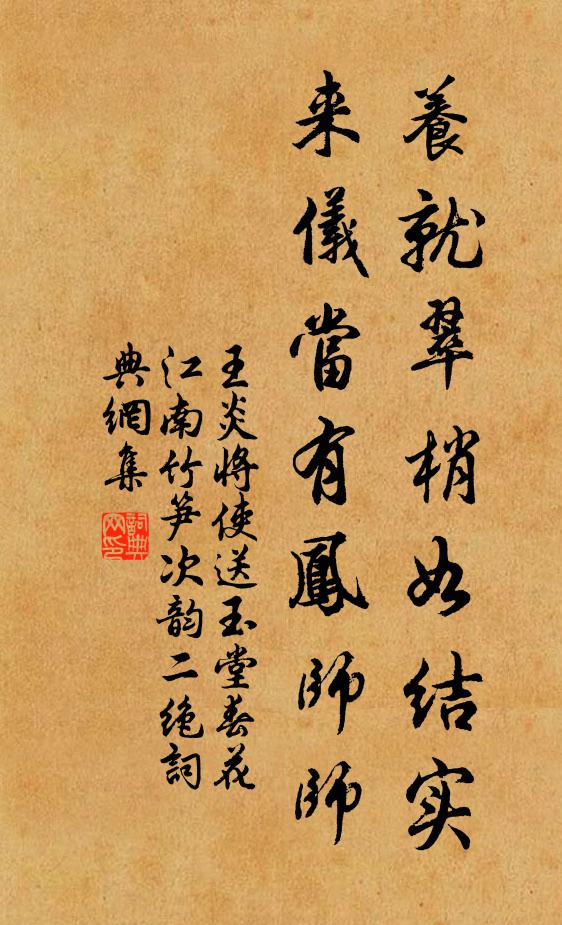 養就翠梢如结实
来儀當有鳳師師
王炎将使送玉堂春花
江南竹笋次韵二绝詞
典網集
詞典
网印